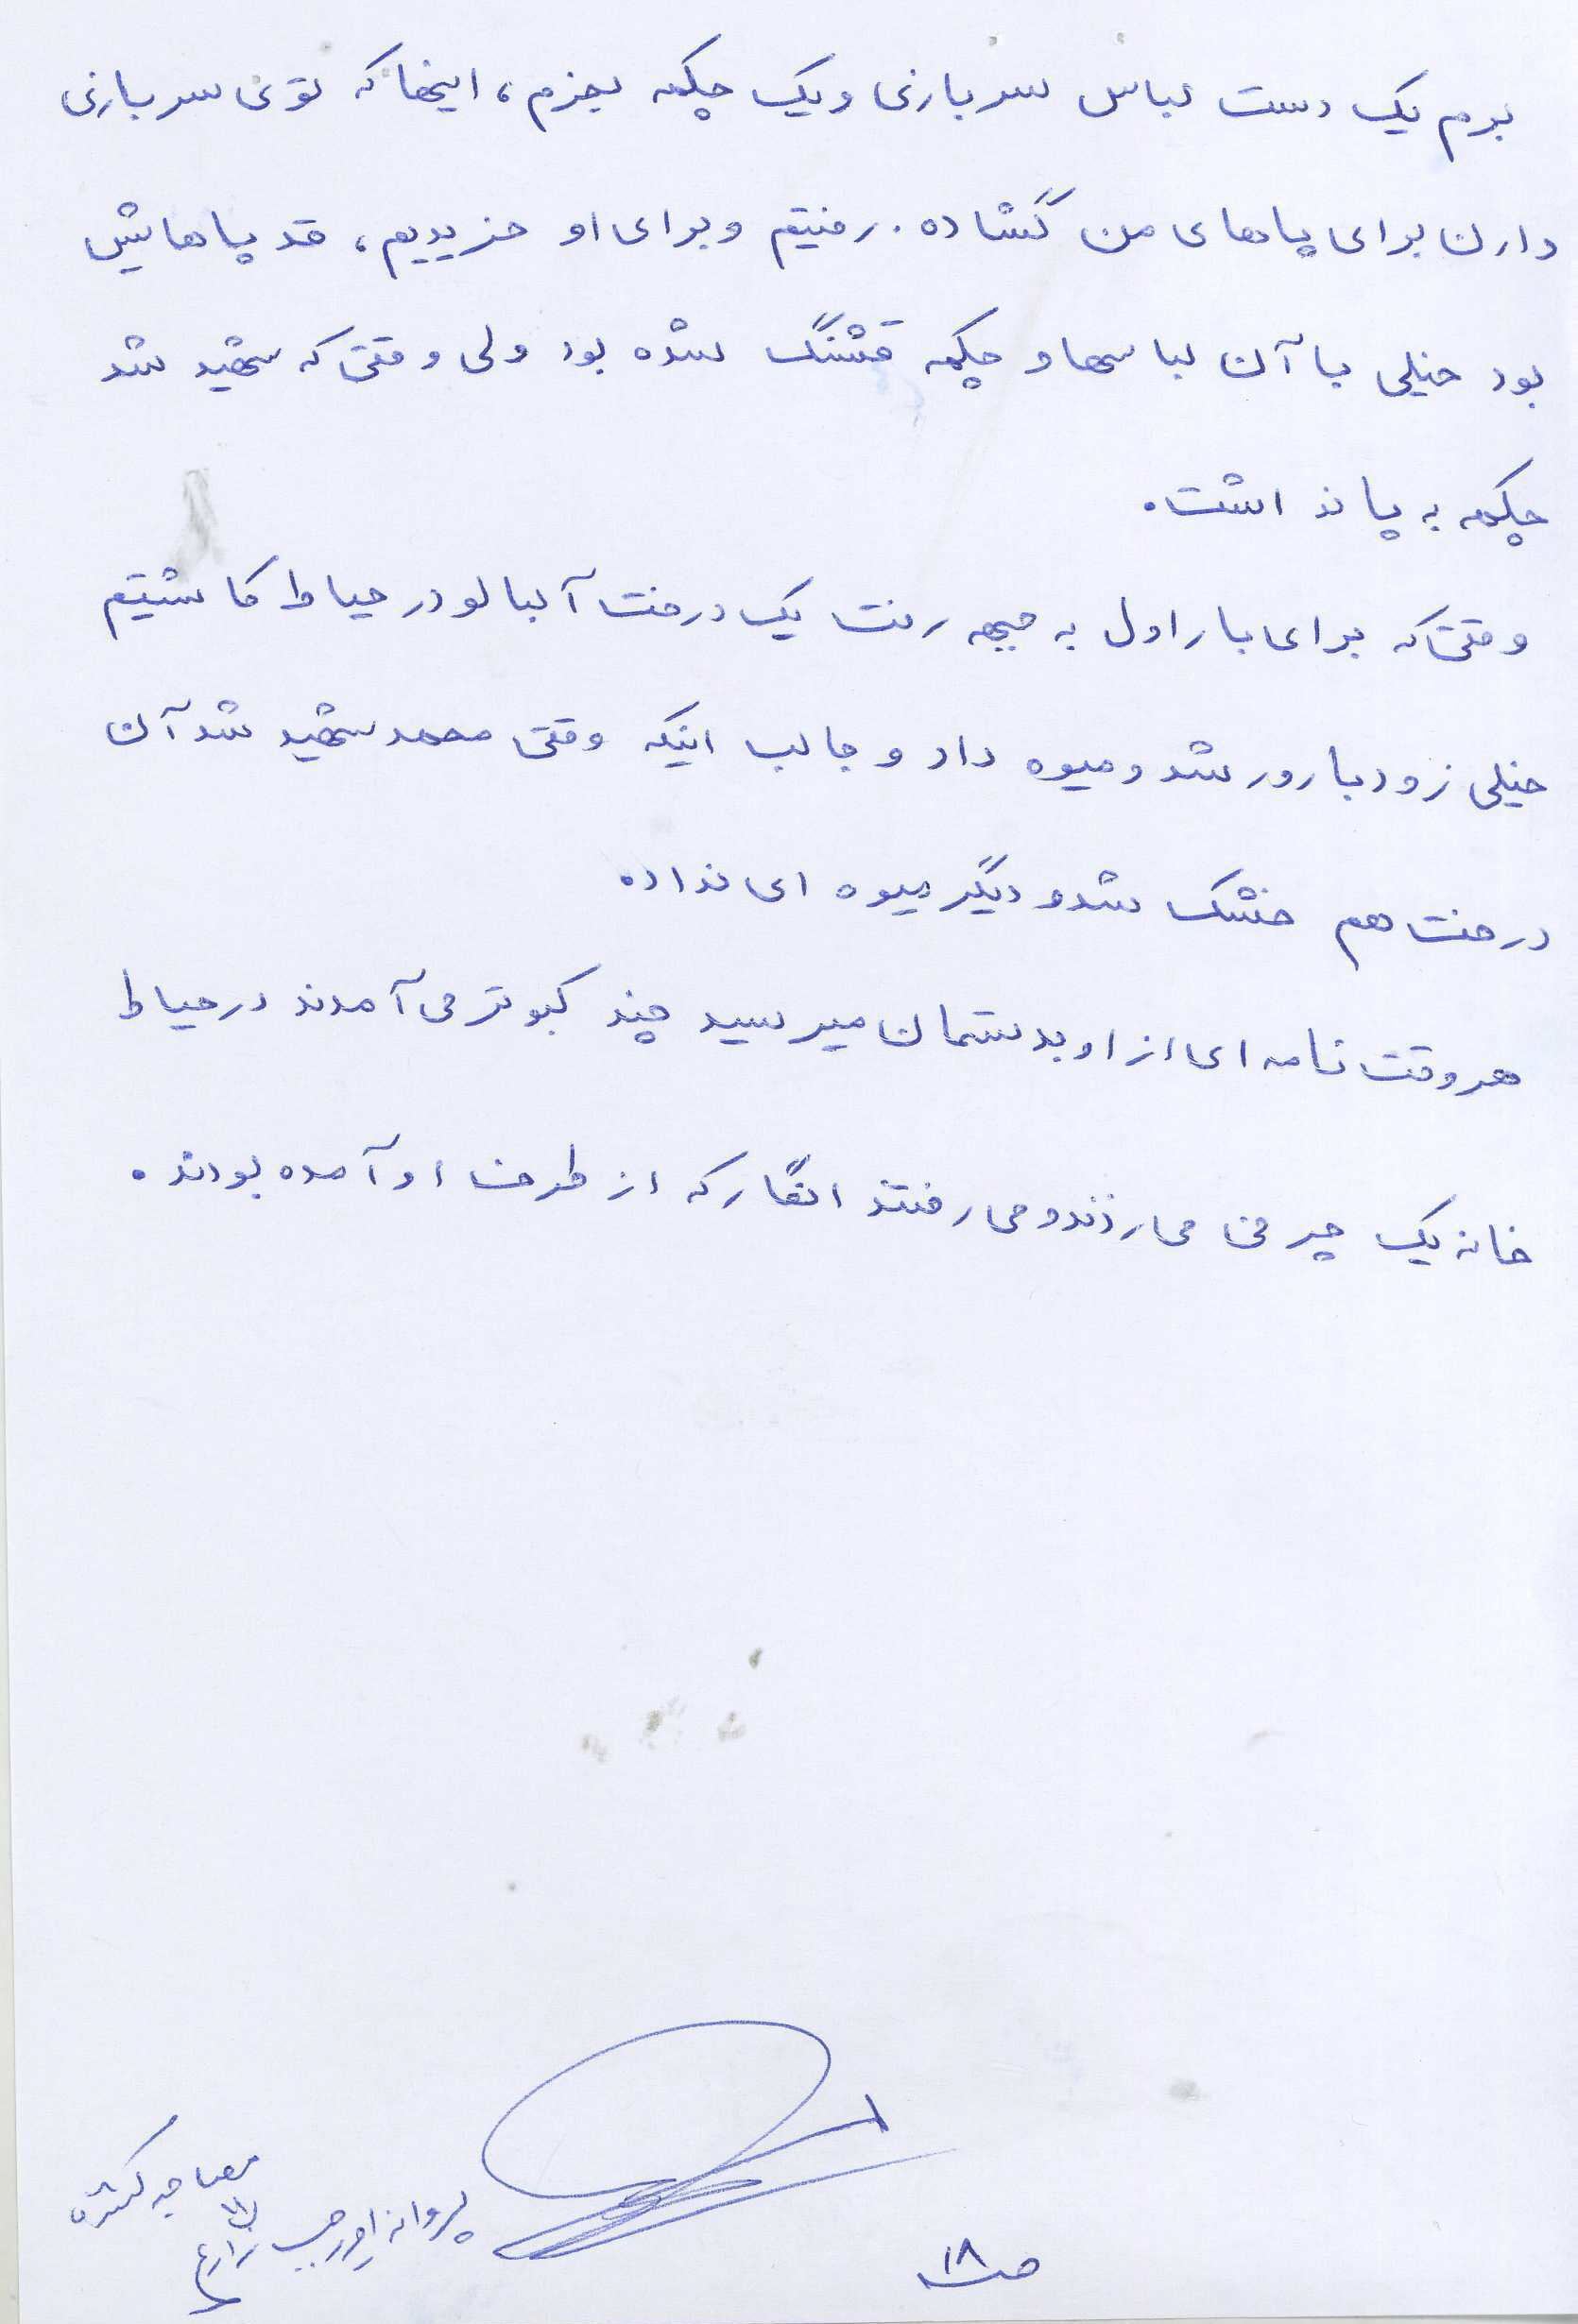 برم یک دست لباس سربازی و یک چکمه بخرم، اینها که توی سربازی
دارن برای پاهای من گشاده. رفتیم و برای او خریدیم، قد پاهایش
بود خیلی با آن لباسها و چکمه قشنگ شده بود ولی وقتی که شهید شد
چکمه به پا نداشت.
وقتی که برای بار اول به جبهه رفت یک درخت آلبالو در حیاط کاشتیم
خیلی زود بارور شد و میوه داد و جالب اینکه وقتی محمد شهید شد آن
درخت هم خشک شد و دیگر میوه ای نداد.
هر وقت نامه ای از او بدستمان میرسید چند کبوتر می آمدند در حیاط
خانه یک چرخی می زدند و می رفتند انگار که از طرف او آمده بودند.
مصاحبه کننده
پروانه
ص ۱۸